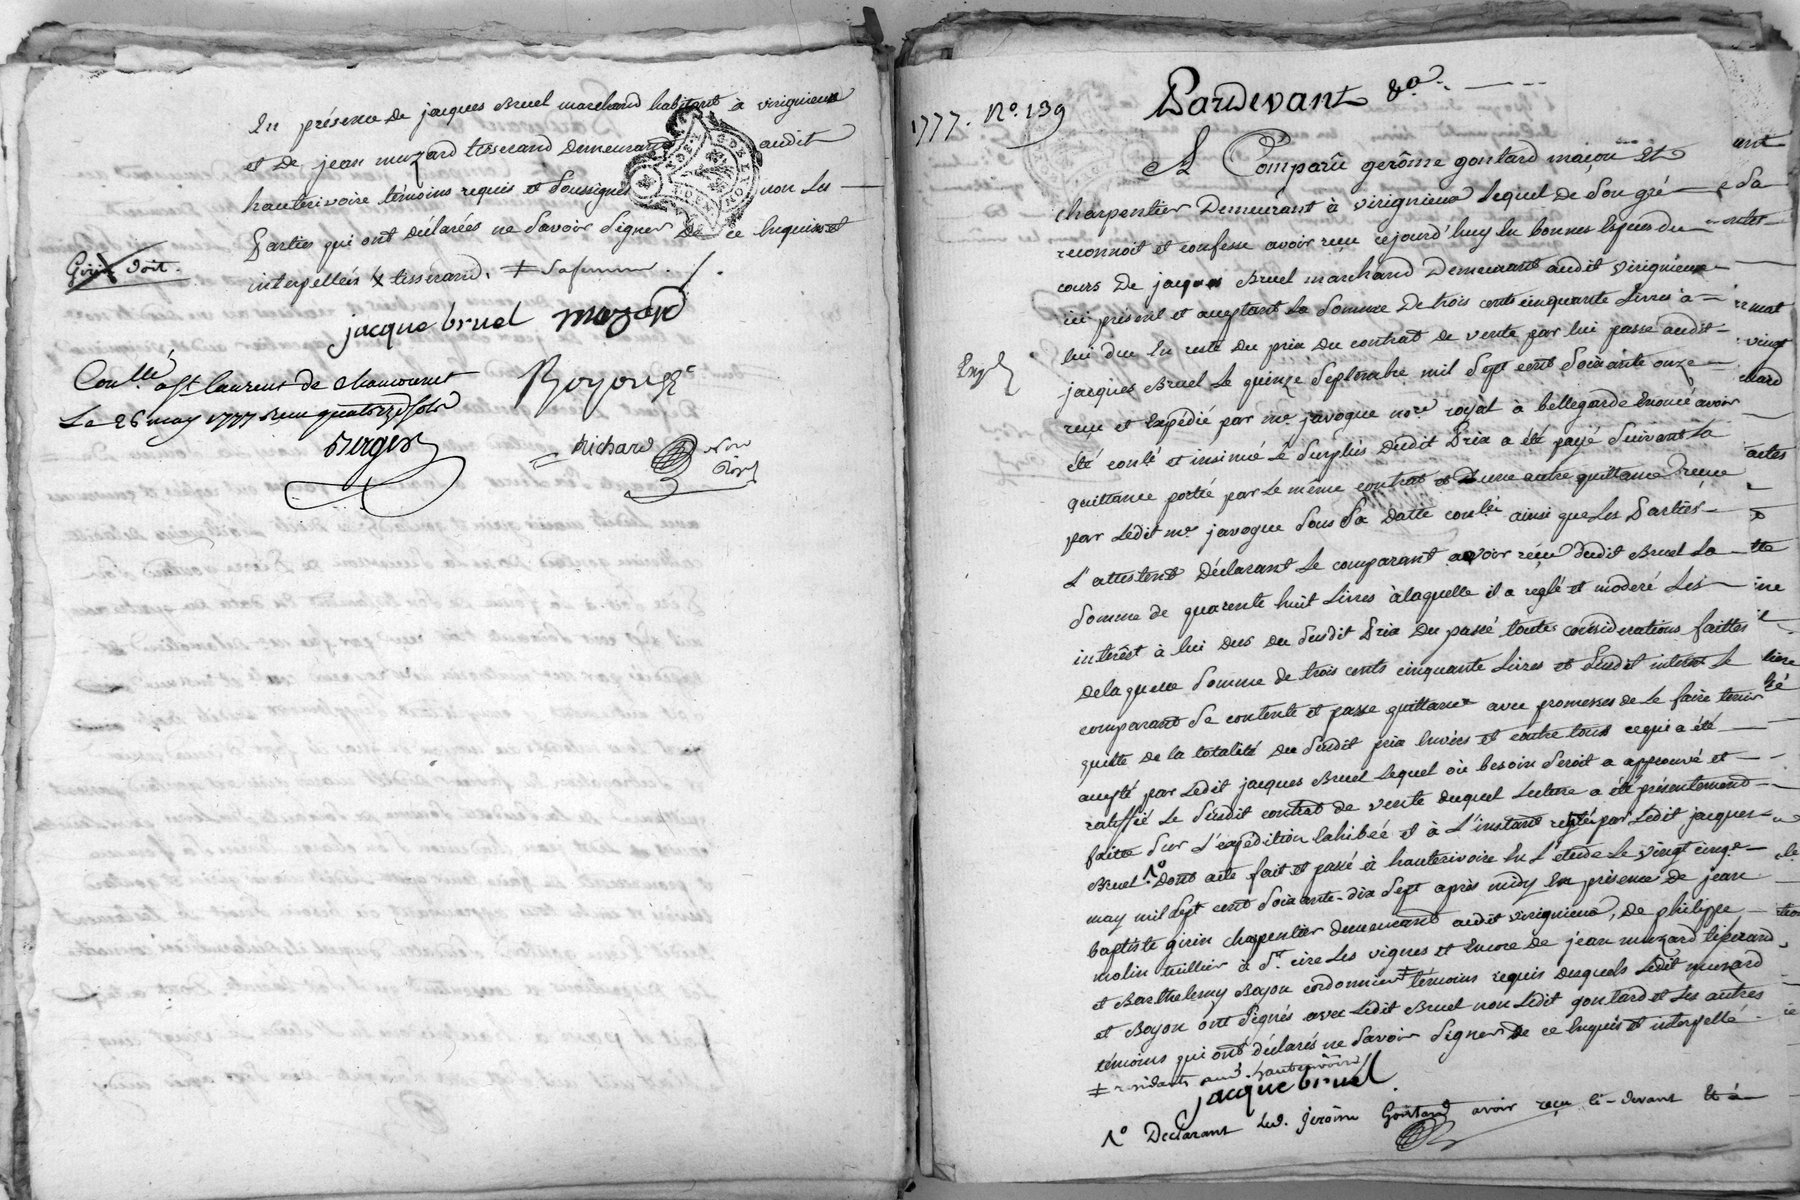 En présence de jacques Bruel marchand habitant à virignieux
et de jean muzard tisserand demeurant audit
hauterivoire témoins requis et soussignés non les
Parties qui ont déclarées ne savoir signer de ce enquis et
interpellés ⨯ tisserand. ‡ sa femme.
Girin doit.
jacque bruel muzard
Con.llé a St laurent de chamousset
Boyon
Le 26 may 1777 Reçu quatorze sols
Berger
Richard
Nore
Roy
1777. No. 139
Pardevant &a.
A Comparû gerôme gontard maçon et
charpentier Demeurant à virignieux lequel de son gré
reconnoit et confesse avoir reçu cejourd'huy en bonnes Espèces du
cours De jacques Bruel marchand Demeurant audit virignieux
ici présent et aceptant La somme De trois cents cinquante Livres à
lui due En reste du prix Du contrat de vente par lui passé audit
jacques Bruel Le quinze Septembre mil Sept cent Soixante onze
reçu et Expédié par me. javogue nore royal à bellegarde Enoncé avoir
été conlé et insinué Le Surplus Dudit Prix a été payé Suivant La
quittance portée par Le même contrat et D'une autre quittance reçue
par Ledit me. javogue Sous Sa Datte conlée ainsi que Les Parties
L'attestent Déclarant Le comparant avoir reçu dudit Bruel La
Somme de quarente huit Livres à laquelle il a reglé et moderé Les
intérêt à lui dus du Susdit Prix Du passé toutes considerations faittes
De laquelle Somme de trois cents cinquante Livres et Susdit interet Le
comparant Se contente et passe quittance avec promesses de Le faire tenir
quitte de la totalité du Susdit prix Envers et contre tous ce qui a été
accepté par Ledit jacques Bruel Lequel où besoin Seroit a approuvé et
ratiffié Le Susdit contrat de vente duquel Lecture a été présentement
faitte Sur L'expédition Exhibée et à L'instant par Ledit jacques
Bruel. 1º Dont acte fait et passé à hauterivoire En L'étude Le vingt cinq
may mil Sept cent Soixante-dix Sept après midy En présence de jean
baptiste girin charpentier demeurant audit virignieux, de philippe
molin tuillier à St. cire Les vignes et Encore de jean muzard tisserand
et Barthelemy Boyon cordonnier ‡ témoins requis desquels Ledit muzard
et Boyon ont Signés avec Ledit Bruel non Ledit gontard et Les autres
témoins qui ont déclarés ne Savoir Signer de ce Enquis et interpellé
‡ résidants aud. hauterivoire
jacque bruel
1º Declarant led. jerôme Gontard avoir reçu ci-devant